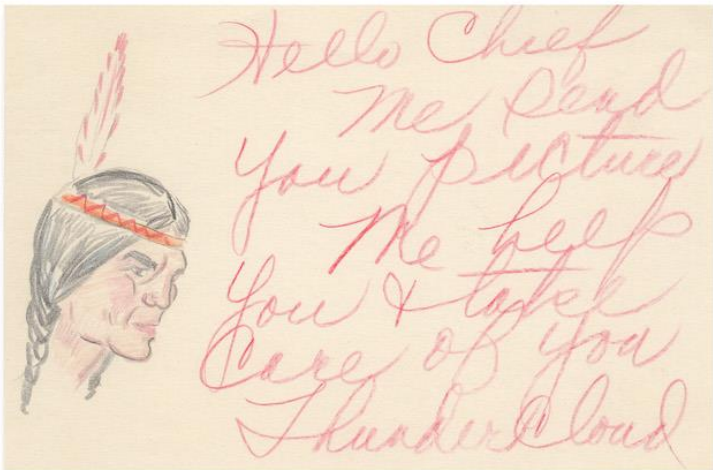 Hello Chief
Me send
you picture
Me help
you & take
care of you
ThunderCloud